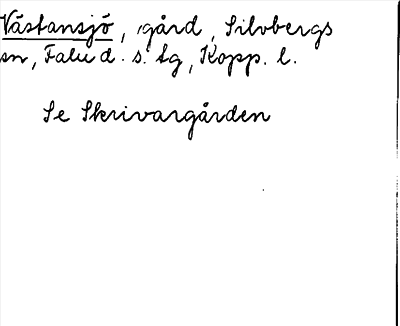 Västansjö, gård, Silvbergs
sn, Falu d. s. tg, Kopp. l.
Se Skrivargården